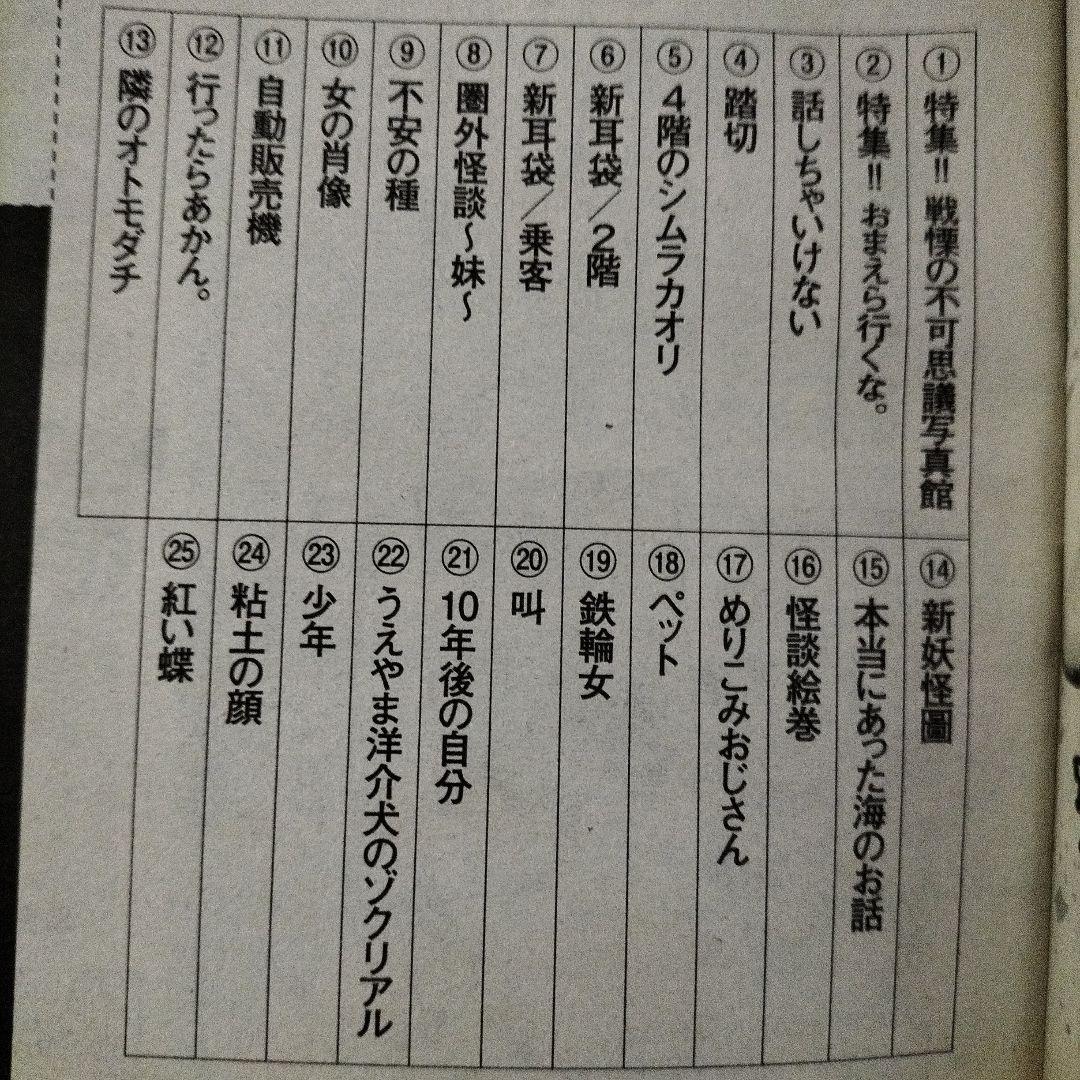 ① 特集!! 戦慄の不可思議写真館
② 特集!! おまえら行くな。
③ 話しちゃいけない
④ 踏切
⑤ 4階のシムラカオリ
⑥ 新耳袋／2階
⑦ 新耳袋／乗客
⑧ 圏外怪談～妹～
⑨ 不安の種
⑩ 女の肖像
⑪ 自動販売機
⑫ 行ったらあかん。
⑬ 隣のオトモダチ
⑭ 新妖怪圖
⑮ 本当にあった海のお話
⑯ 怪談絵巻
⑰ めりこみおじさん
⑱ ペット
⑲ 鉄輪女
⑳ 叫
㉑ 10年後の自分
㉒ うえやま洋介犬のゾクリアル
㉓ 少年
㉔ 粘土の顔
㉕ 紅い蝶